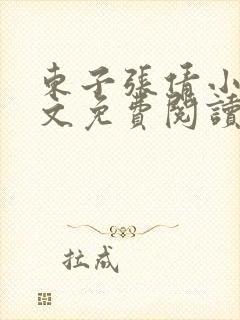 東子張倩小
文免費閱讀
拉成